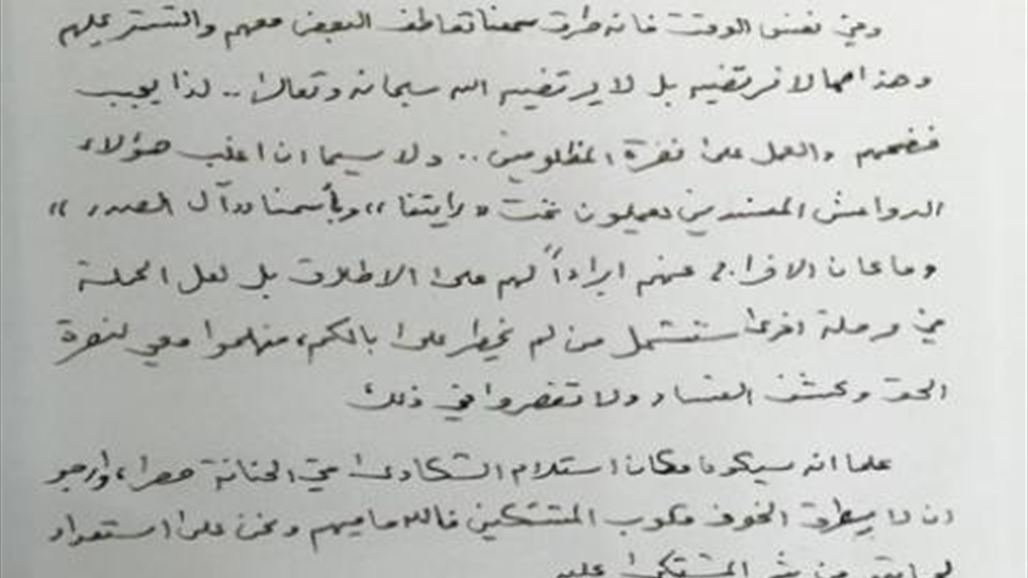 وفي نفس الوقت فانه طرق سمعنا تعاطف البعض معهم والتستر عليهم
وهذا مما لا نرتضيه بل لا يرتضيه الله سبحانه وتعالى .. لذا يجب
فضحهم والعمل على نصرة المظلومين .. ولا سيما ان اغلب هؤلاء
الدواعش المفسدين يعملون تحت «رايتنا» وبأسمنا «آل الصدر»
وما كان الافراج عنهم ابراءاً لهم على الاطلاق بل لعل الحملة
في مرحلة اخرى ستشمل من لم يخطر على بالكم، فهلموا معي لنصرة
الحق وكشف الفساد ولا تقصروا في ذلك
علما انه سيكون مكان استلام الشكاوى في الحنانة حصرا، وارجو
ان لا يطرق الخوف قلوب المشتكين فالله حاميهم ونحن على استعداد
من شر المشتكى عليه